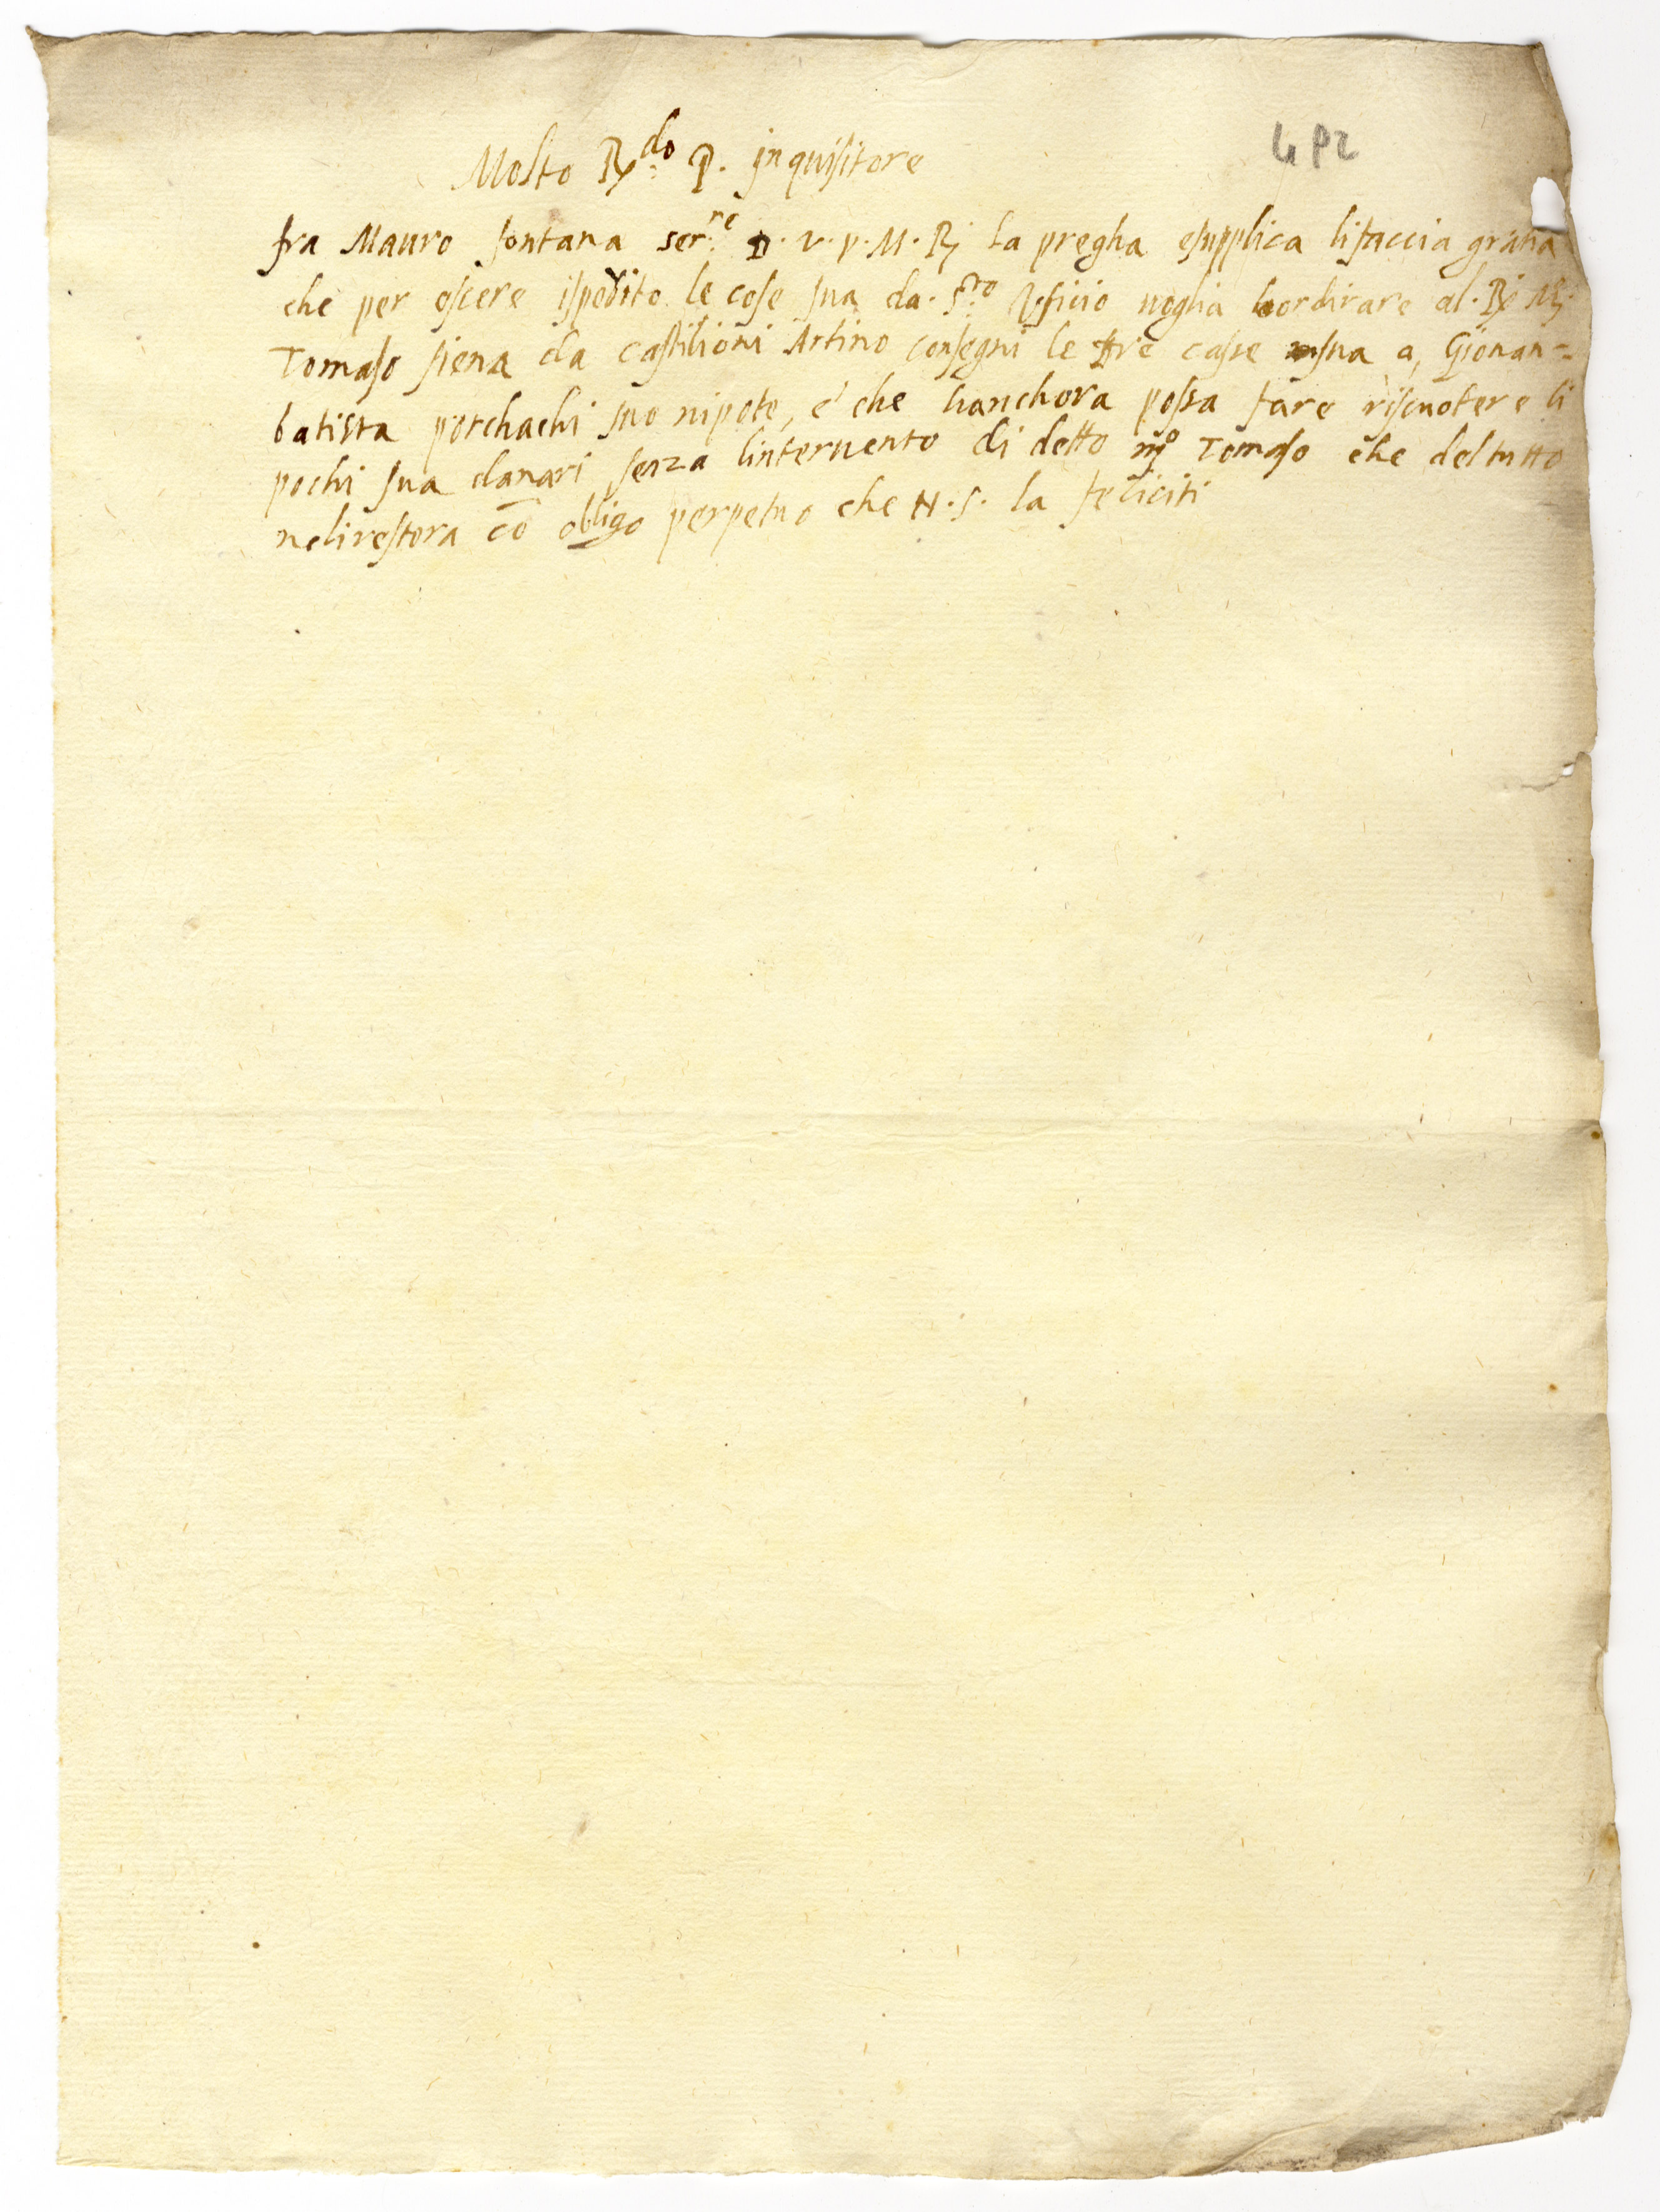 4 P2
Molto R.do P. inquisitore
fra Mauro fontana ser.re D. v. p. M. R. la pregha esupplica lifaccia gratia
che per escere ispedito le cose sua da. S.to Uficio voglia hordirare al. R. M.
Tomaso siena da castilioni Artino consegni le tre casse sua a, Giouan=
batista porchachi suo nipote, e' che hanchora possa fare riscuotere li
pochi sua danari senza linteruento di detto m.o Tomaso che del tutto
nelirestora cō obligo perpetuo che N. S. la feliciti